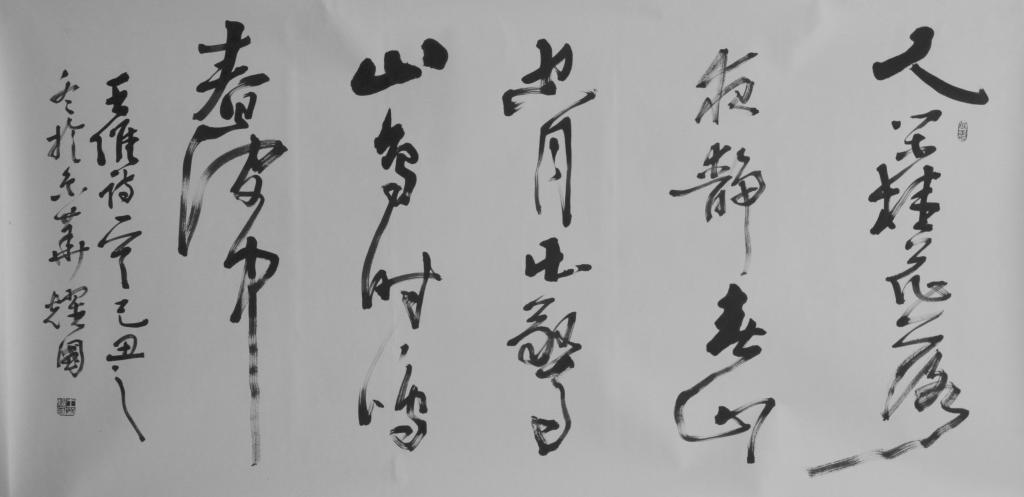 人閑桂花落
夜靜春山
空月出驚
山鳥时鳴
春澗中
王維詩一首己丑之
冬於京華 耀國